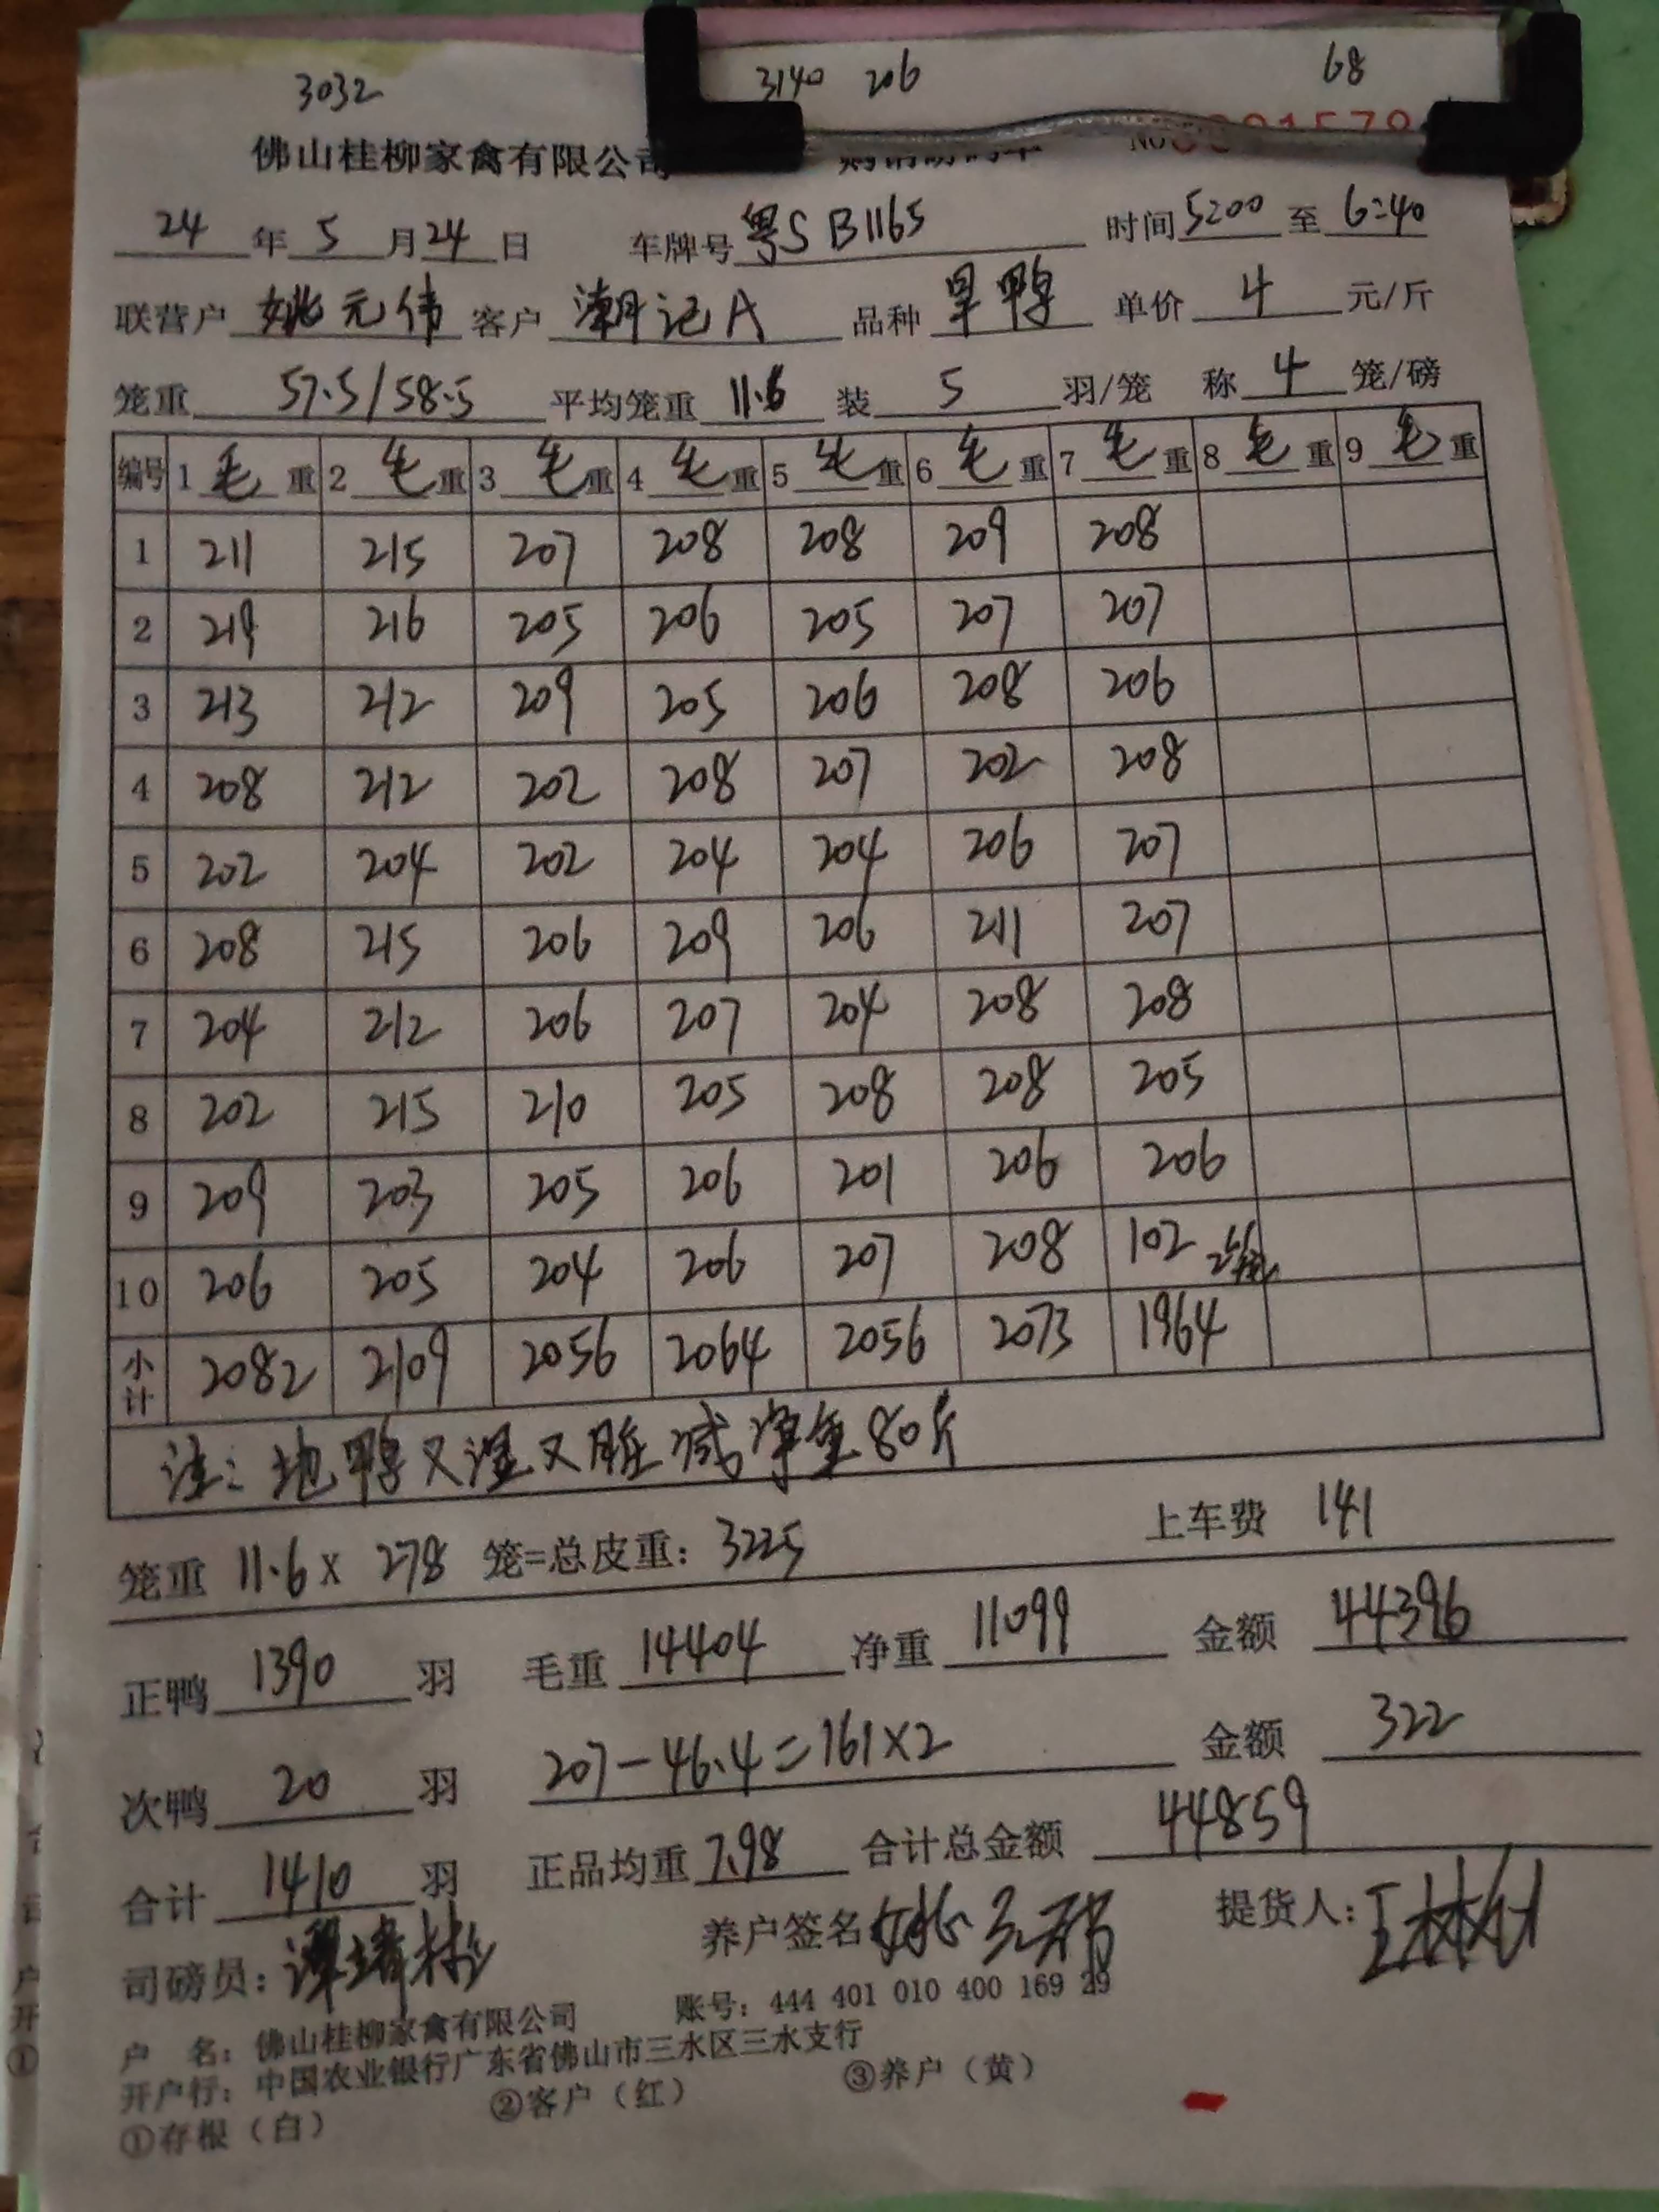 3032 3140 206 68
佛山桂柳家禽有限公司 No 001578
24 年 5 月 24 日 车牌号 粤S B1165 时间 5:00 至 6:40
联营户 姚元伟 客户 潮记A 品种 旱鸭 单价 4 元/斤
笼重 57.5/58.5 平均笼重 11.6 装 5 羽/笼 称 4 笼/磅
编号 1 毛 重 2 毛 重 3 毛 重 4 毛 重 5 毛 重 6 毛 重 7 毛 重 8 毛 重 9 毛 重
1 211 215 207 208 208 209 208
2 219 216 205 206 205 207 207
3 213 212 209 205 206 208 206
4 208 212 202 208 207 202 208
5 202 204 202 204 204 206 207
6 208 215 206 209 206 211 207
7 204 212 206 207 204 208 208
8 202 215 210 205 208 208 205
9 209 203 205 206 201 206 206
10 206 205 204 206 207 208 102 2笼
小计 2082 2109 2056 2064 2056 2073 1964
注: 地鸭又湿又脏减净重80斤
笼重 11.6 x 278 笼=总皮重: 3225 上车费 141
正鸭 1390 羽 毛重 14404 净重 11099 金额 44396
次鸭 20 羽 207-46.4=161×2 金额 322
合计 1410 羽 正品均重 7.98 合计总金额 44859
司磅员: 养户签名 姚 提货人: 王林
户 名: 佛山桂柳家禽有限公司 账号: 444 401 010 400 169 29
开户行: 中国农业银行广东省佛山市三水区三水支行
①存根（白） ②客户（红） ③养户（黄）